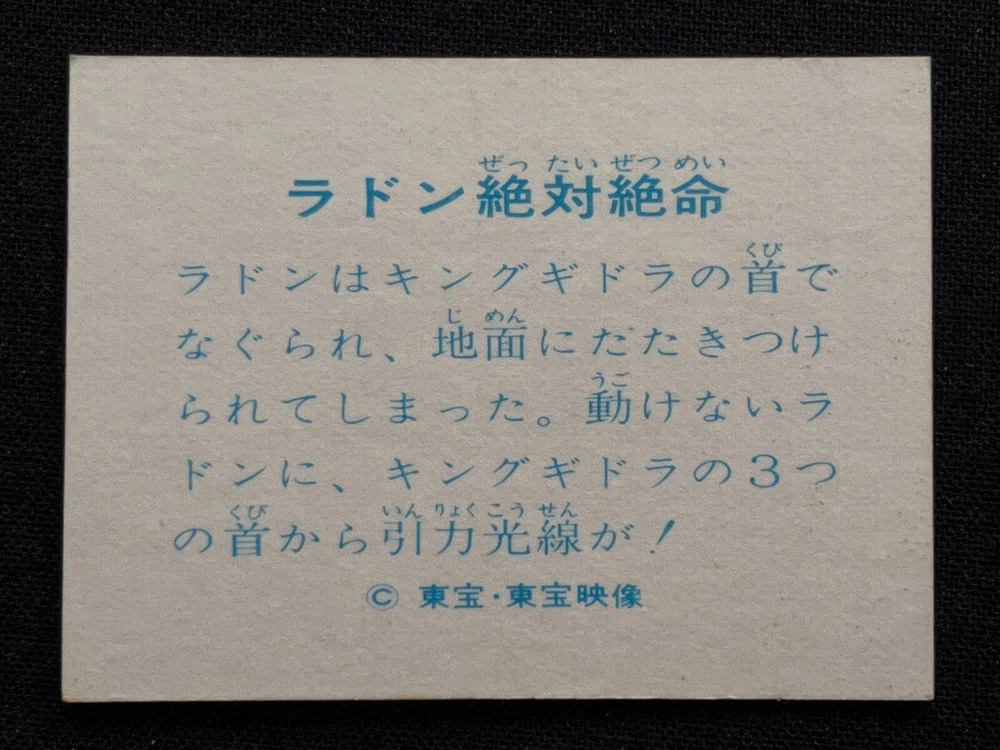 ぜっ たい ぜつ めい
ラドン絶対絶命
くび
ラドンはキングギドラの首で
じ めん
なぐられ、地面にたたきつけ
うご
られてしまった。動けないラ
ドンに、キングギドラの3つ
くび いん りょく こう せん
の首から引力光線が!
© 東宝・東宝映像